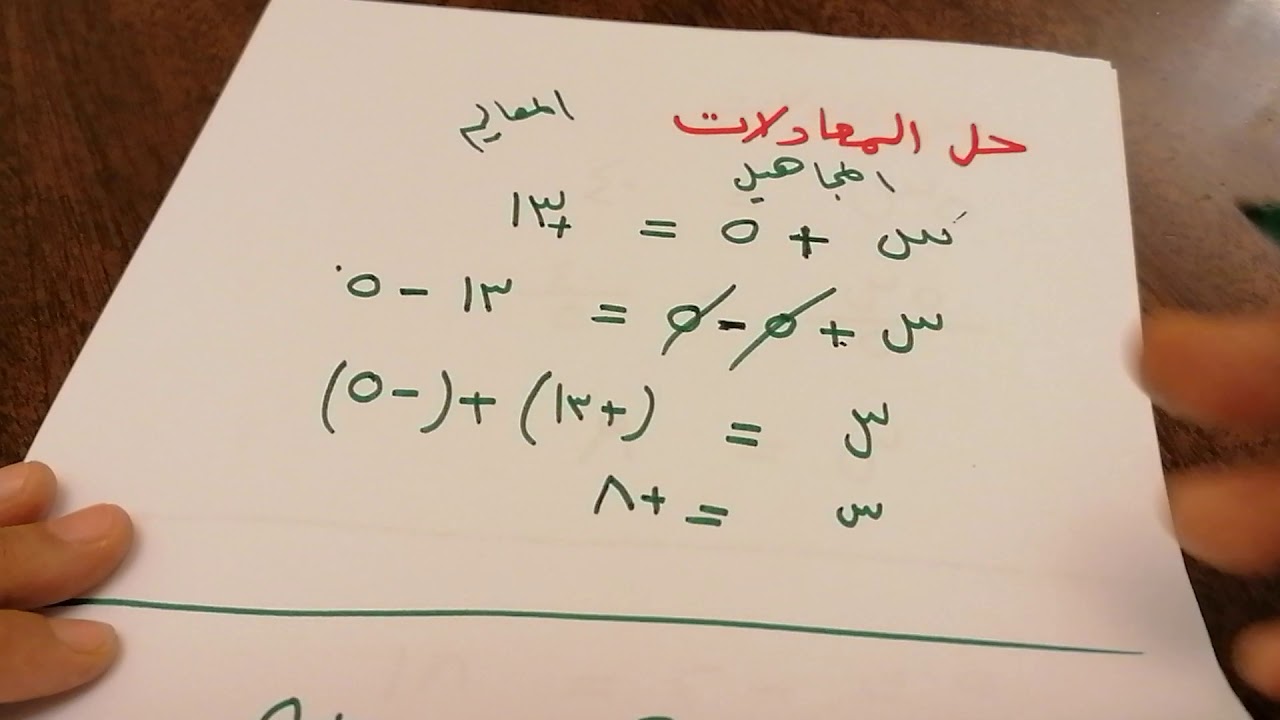 حل المعادلات
المجاهيل المعاليم
س + ٥ = +١٣
س + ٥ - ٥ = ١٣ - ٥
س = (+١٣) + (-٥)
س = +٨